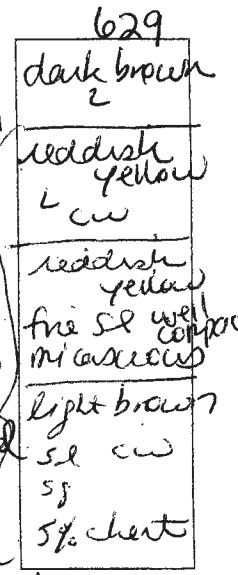 629
dark brown
L
reddish
yellow
L cw
reddish
yellow
fine sl well
compac
micaseuous
light brown
sl cw
sg
5% chert